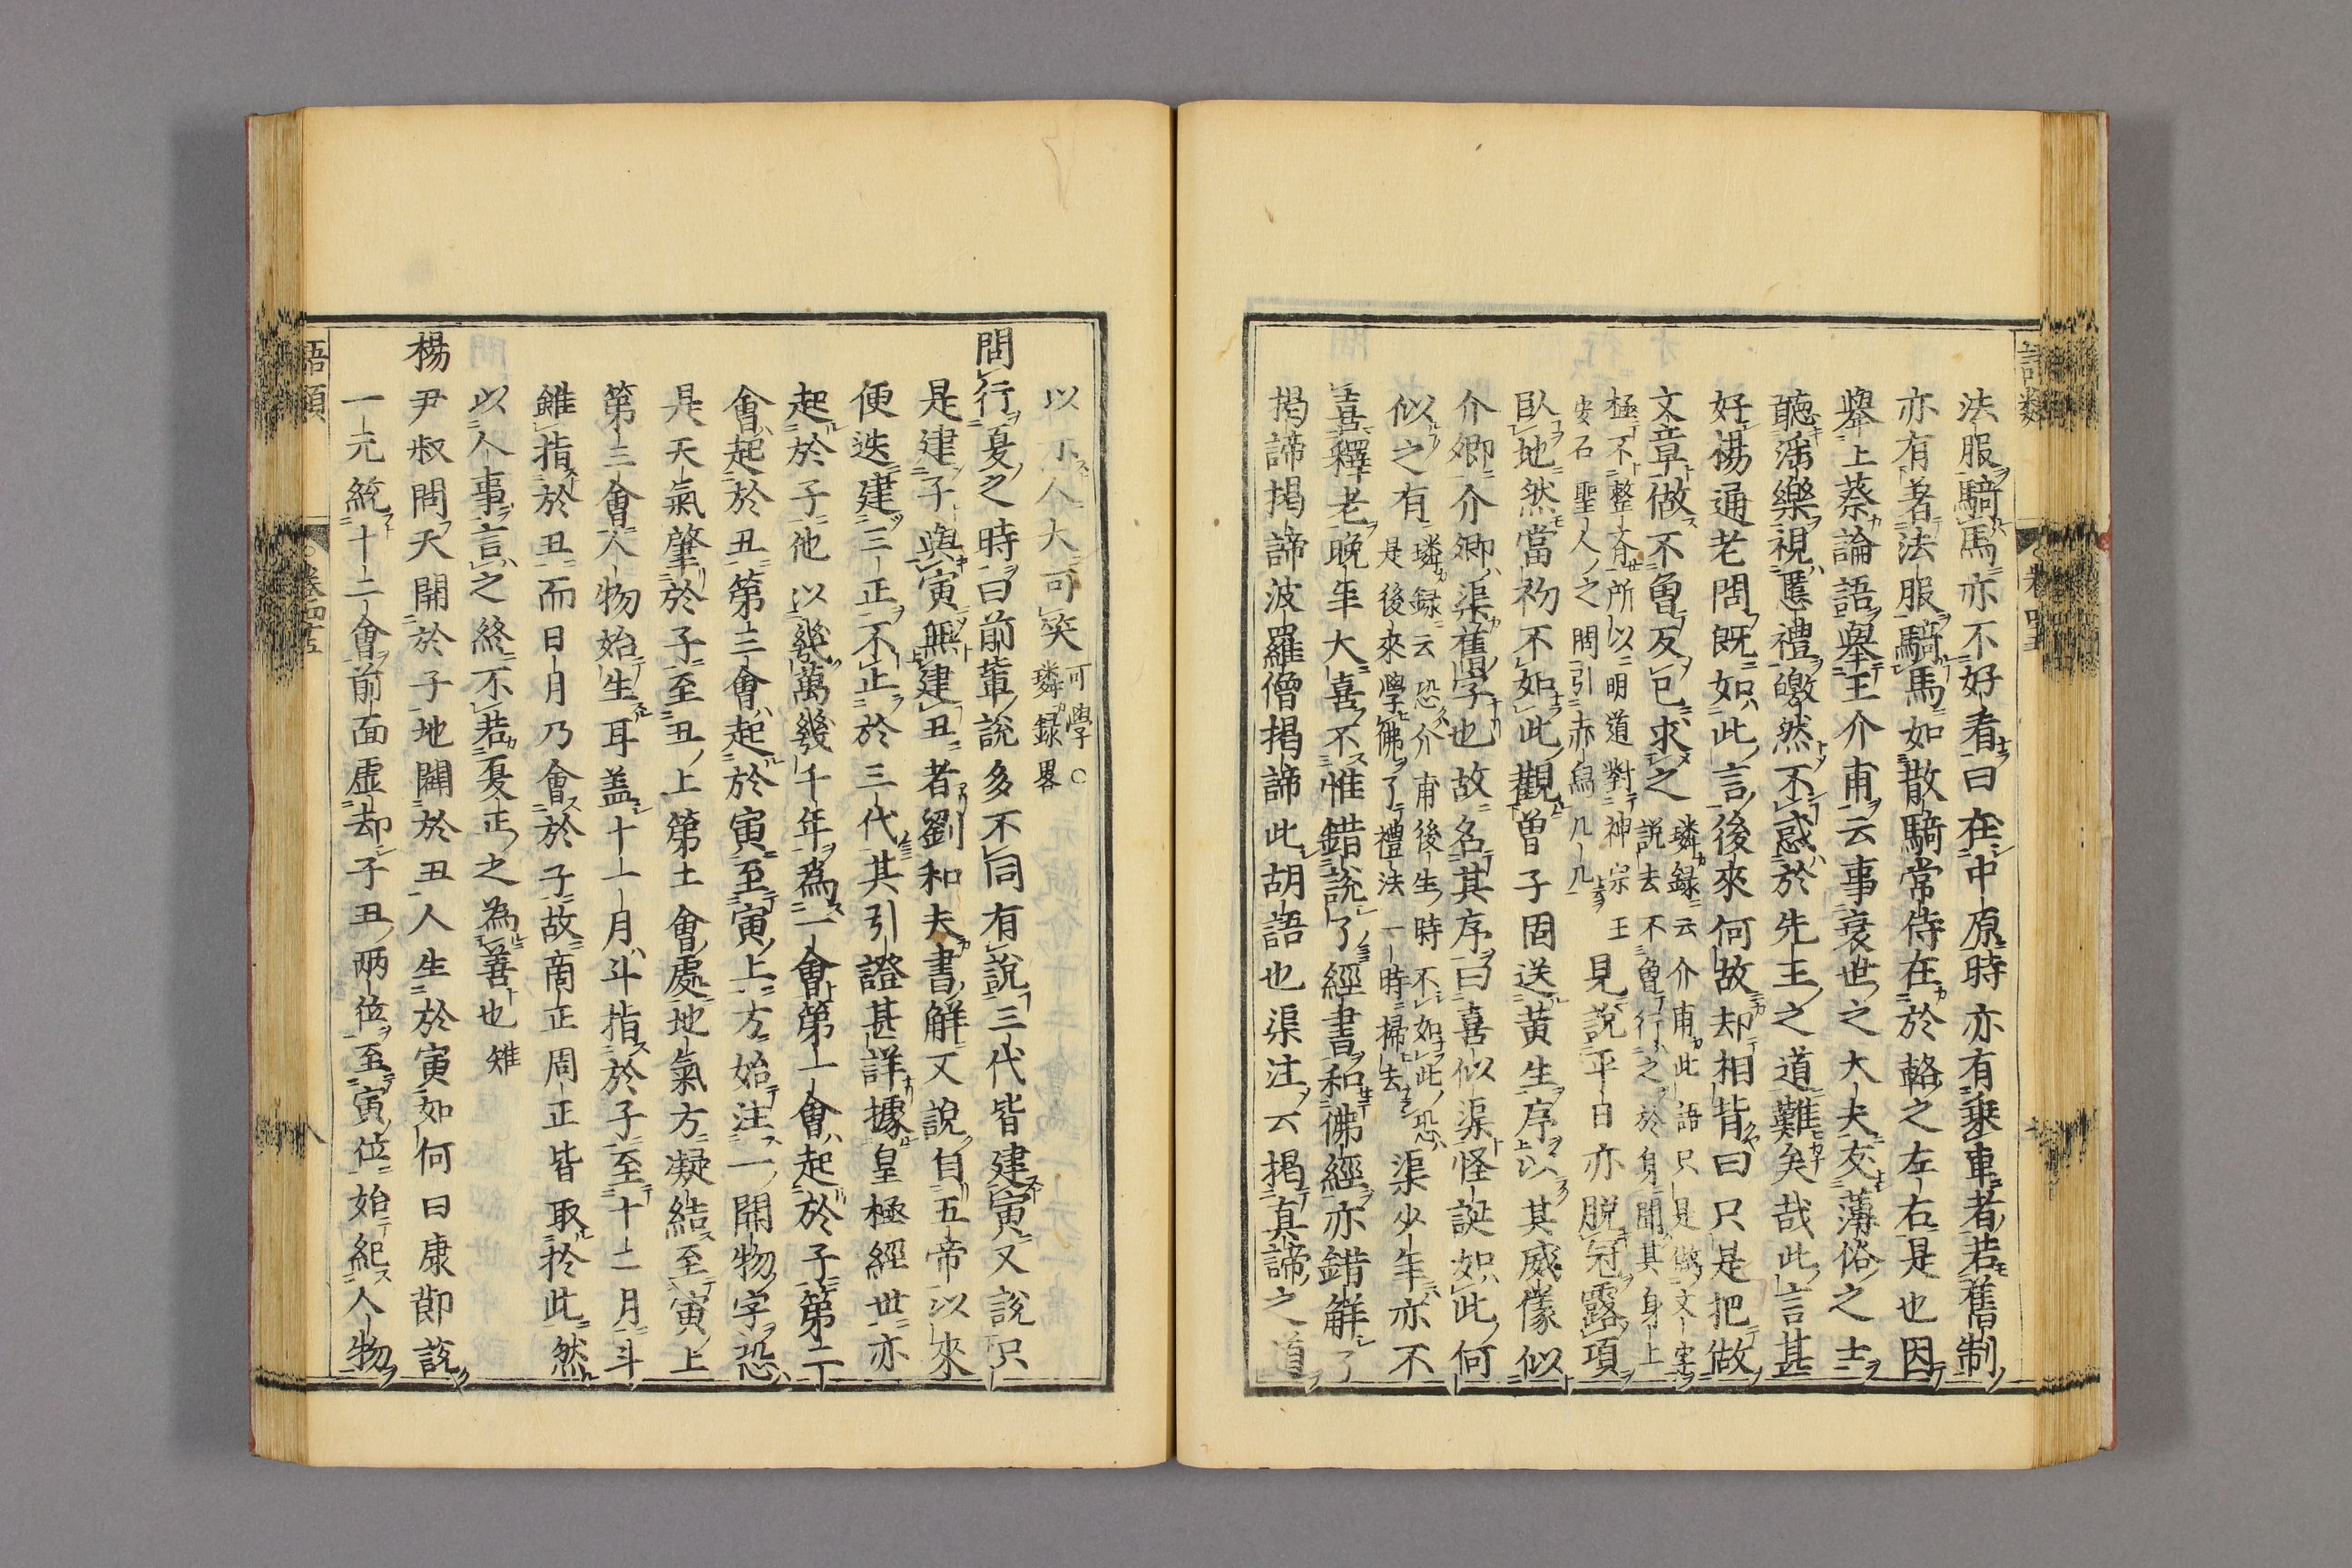 語類
卷四十五
法服騎馬亦不好看曰在中原時亦有乗車者若舊制
亦有著法服騎馬如散騎常侍在於輅之左右是也因
舉上蔡論語舉王介甫云事衰世之大夫友薄俗之士
聽滛樂視慝禮皦然不惑於先王之道難矣哉此言甚
好楊通老問旣如此言後來何故却相背曰只是把做
文章做不魯反已求之璘録云介甫此語只是做文字
説去不魯行之於身聞其身上
極不整齊所以明道對神宗王
安石聖人之問引赤舄几几
見說平日亦脱冠露項
臥地然當初不如此觀曽子固送黃生序以其威儀似
介卿介卿渠舊字也故名其序曰喜似渠怪誕如此何
似之有璘録云恐介甫後生時不如此恐
是後來學佛了禮法一時掃去
渠少年亦不
喜釋老晚年大喜不惟錯說了經書和佛經亦錯解了
掲諦掲諦波羅僧掲諦此胡語也渠注云掲真諦之道
以示人大可笑可學○
璘録畧
問行夏之時曰前輩説多不同有說三代皆建寅又說只
是建子與寅無建丑者劉和夫書解又說自五帝以來
便迭建三正不止於三代其引證甚詳據皇極經世亦
起於子他以幾萬幾千年為一會第一會起於子第二
會起於丑第三會起於寅至寅上方始注一開物字恐
是天氣肇於子至丑上第二會處地氣方凝結至寅上
第三會人物始生耳盖十一月斗指於子至十二月斗
雖指於丑而日月乃會於子故商正周正皆取於此然
以人事言之終不若夏正之為善也雉
楊尹叔問天開於子地闢於丑人生於寅如何曰康節說
一元統十二會前面虚却子丑兩位至寅位始紀人物
語類
卷四十五
八